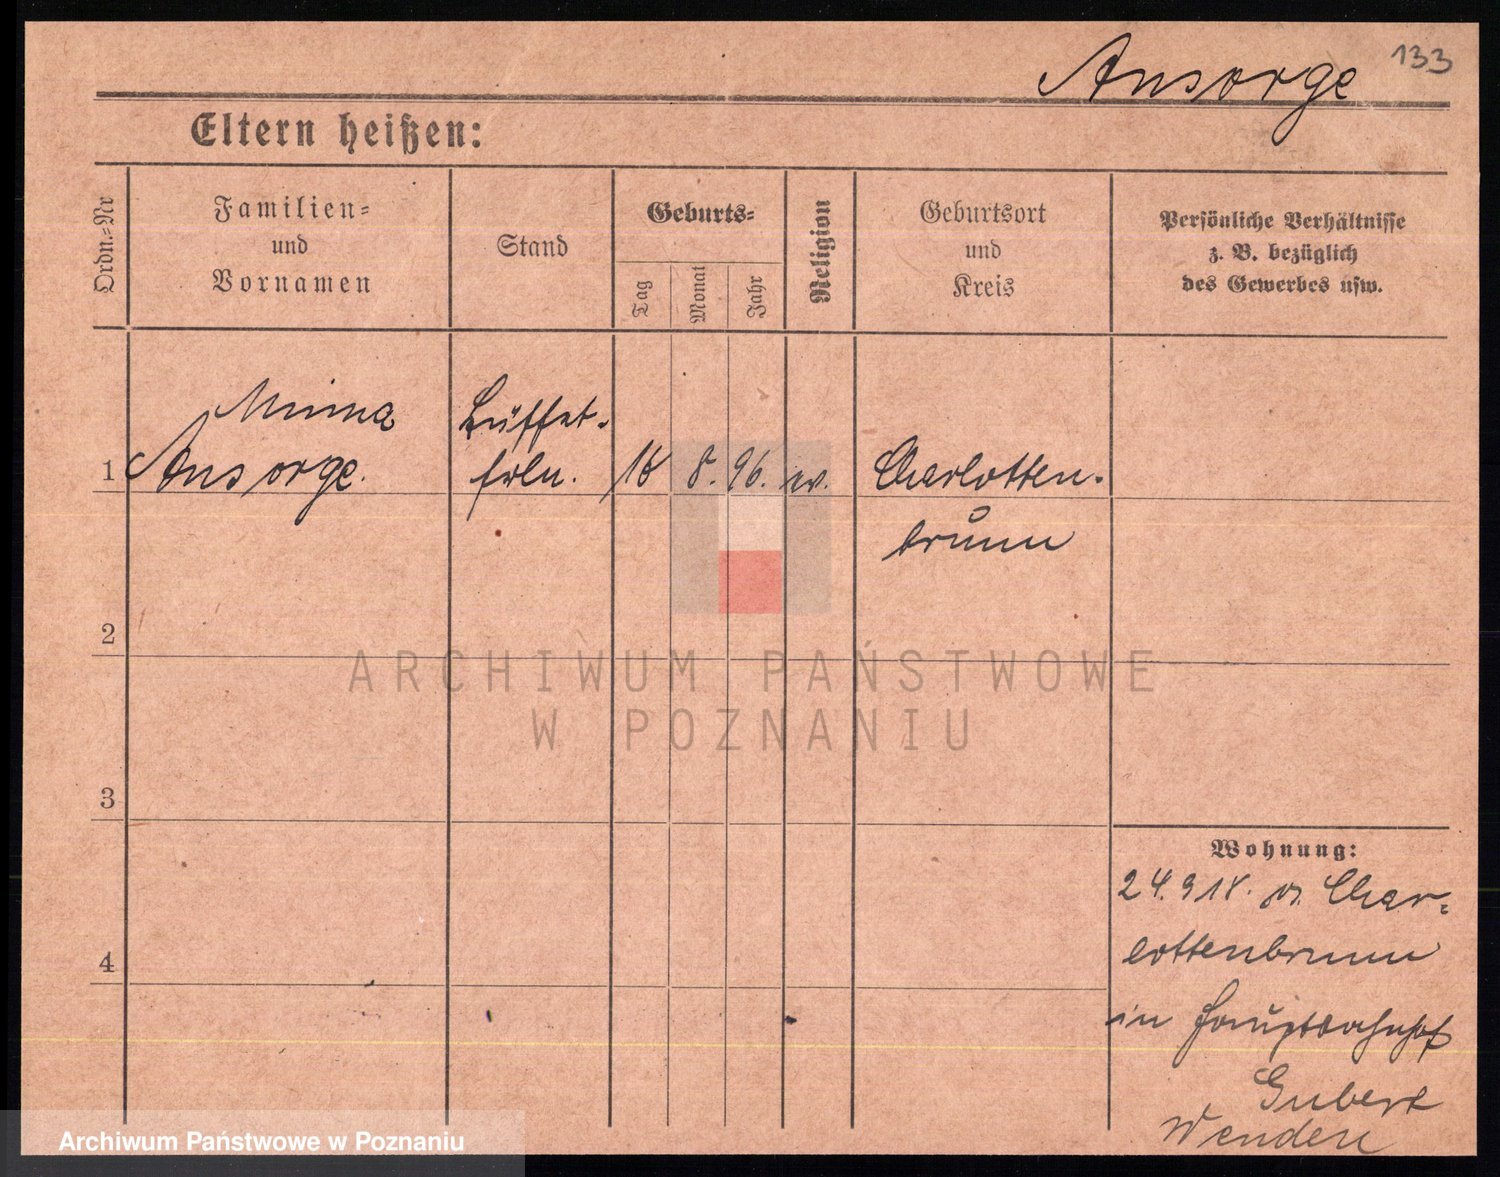 133
Ansorge
Eltern heißen:
Ordn.=Nr
Familien=
und
Vornamen
Stand
Geburts=
Tag
Monat
Jahr
Religion
Geburtsort
und
Kreis
Persönliche Verhältnisse
z. B. bezüglich
des Gewerbes usw.
Minna
Ansorge.
Büffet-
frln.
1
8. 96.
ev.
Charlotten-
brunn
2
3
4
Wohnung:
24.9 18. v. Char=
lottenbrunn
in Hauptbahnhof
ARCHIWUM PAŃSTWOWE
W POZNANIU
Archiwum Państwowe w Poznaniu